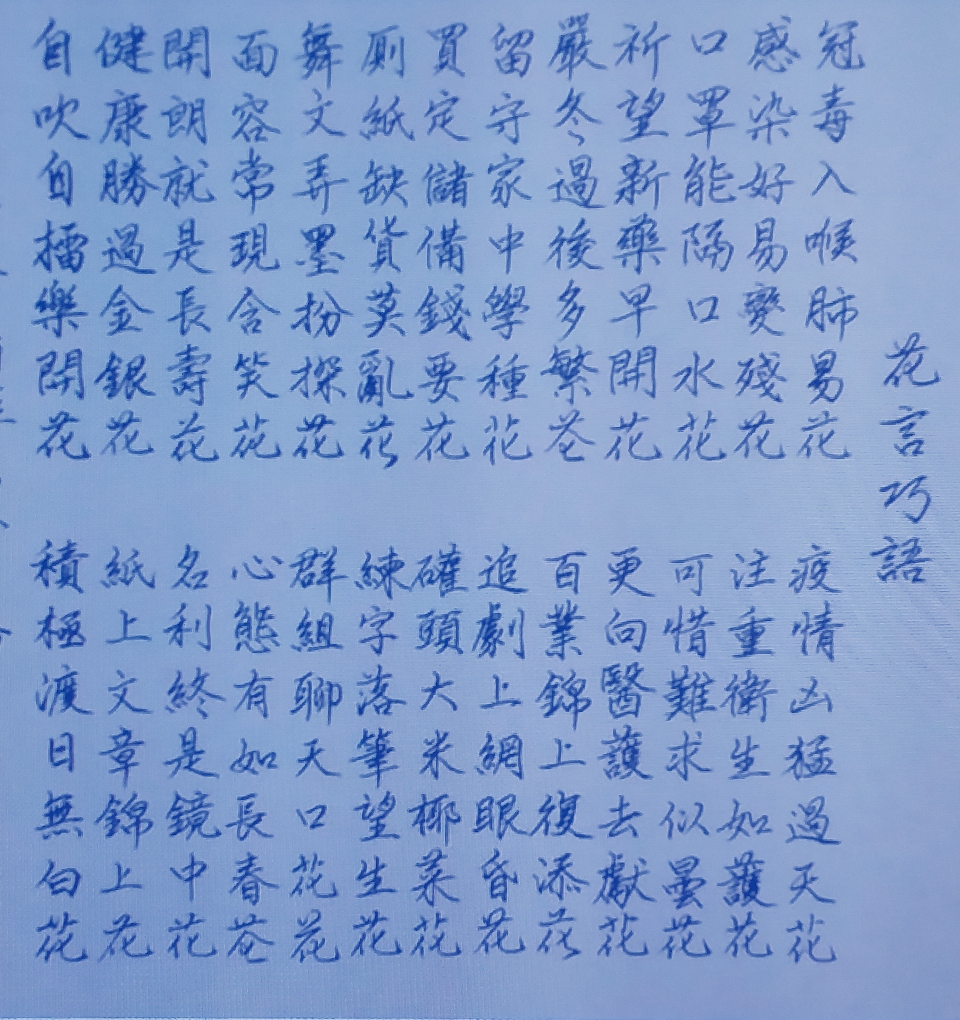 花言巧語
冠毒入喉肺易花
疫情凶猛過天花
感染好易變殘花
注重衛生如護花
口罩能隔口水花
可惜難求似曇花
祈望新藥早開花
更向醫護去獻花
嚴冬過後多繁花
百業錦上復添花
留守家中學種花
追劇上網眼昏花
買定儲備錢要花
礶頭大米椰菜花
厠紙缺貨莫亂花
練字落筆望生花
舞文弄墨扮探花
群組聊天口花花
面容常現含笑花
心態有如長春花
開朗就是長壽花
名利終是鏡中花
健康勝過金銀花
紙上文章錦上花
自吹自擂樂開花
積極渡日無白花